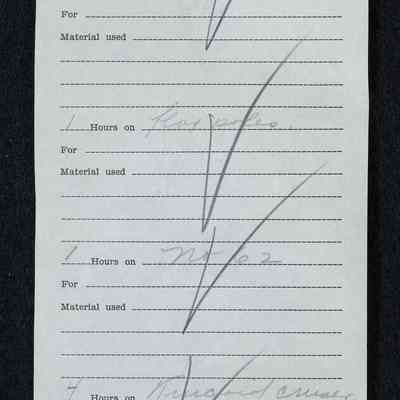 For
Material used
1 Hours on flag poles.
For
Material used
1 Hours on No 62
For
Material used
4 Hours on cruiser